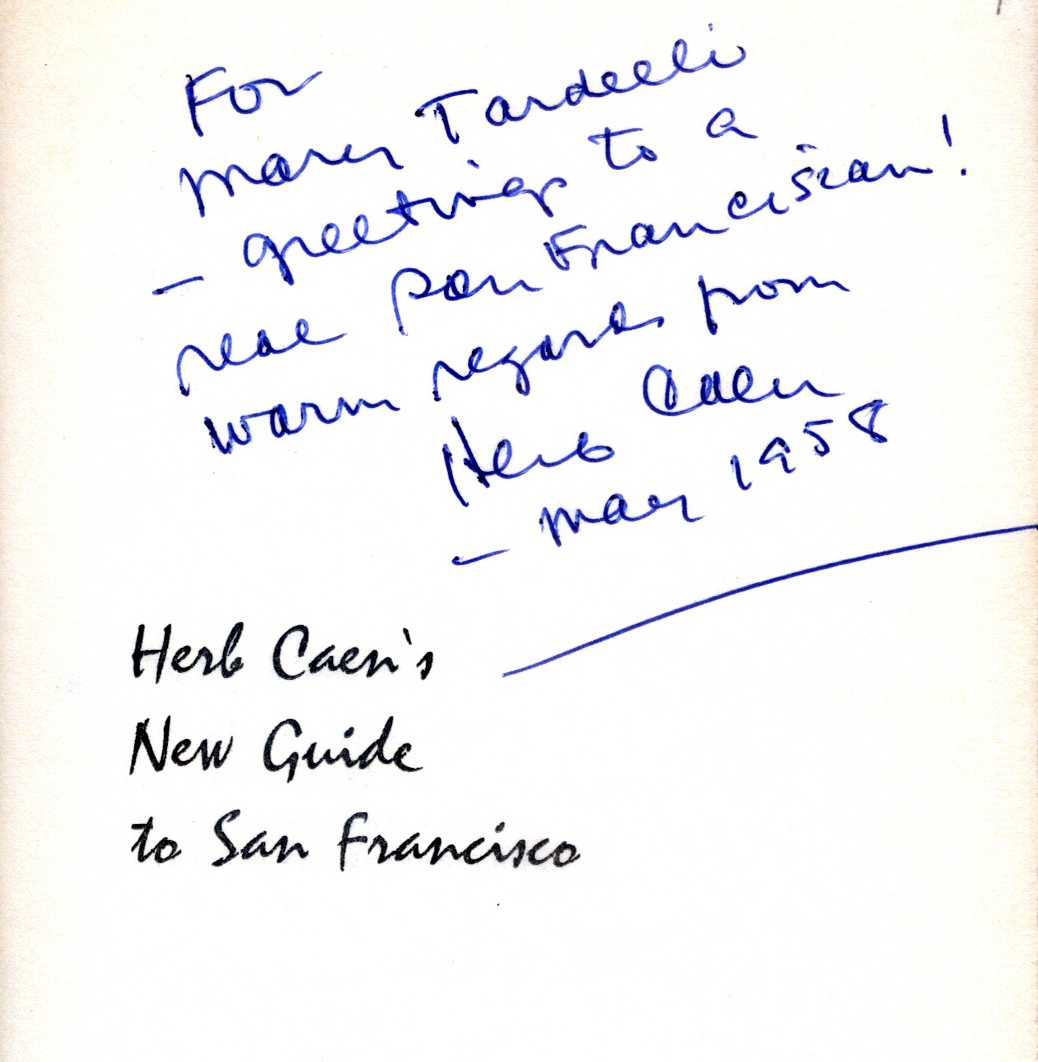 For
Mary Tardelli
– greetings to a
real San Franciscan!
warm regards from
Herb Caen
– May 1958
Herb Caen's
New Guide
to San Francisco